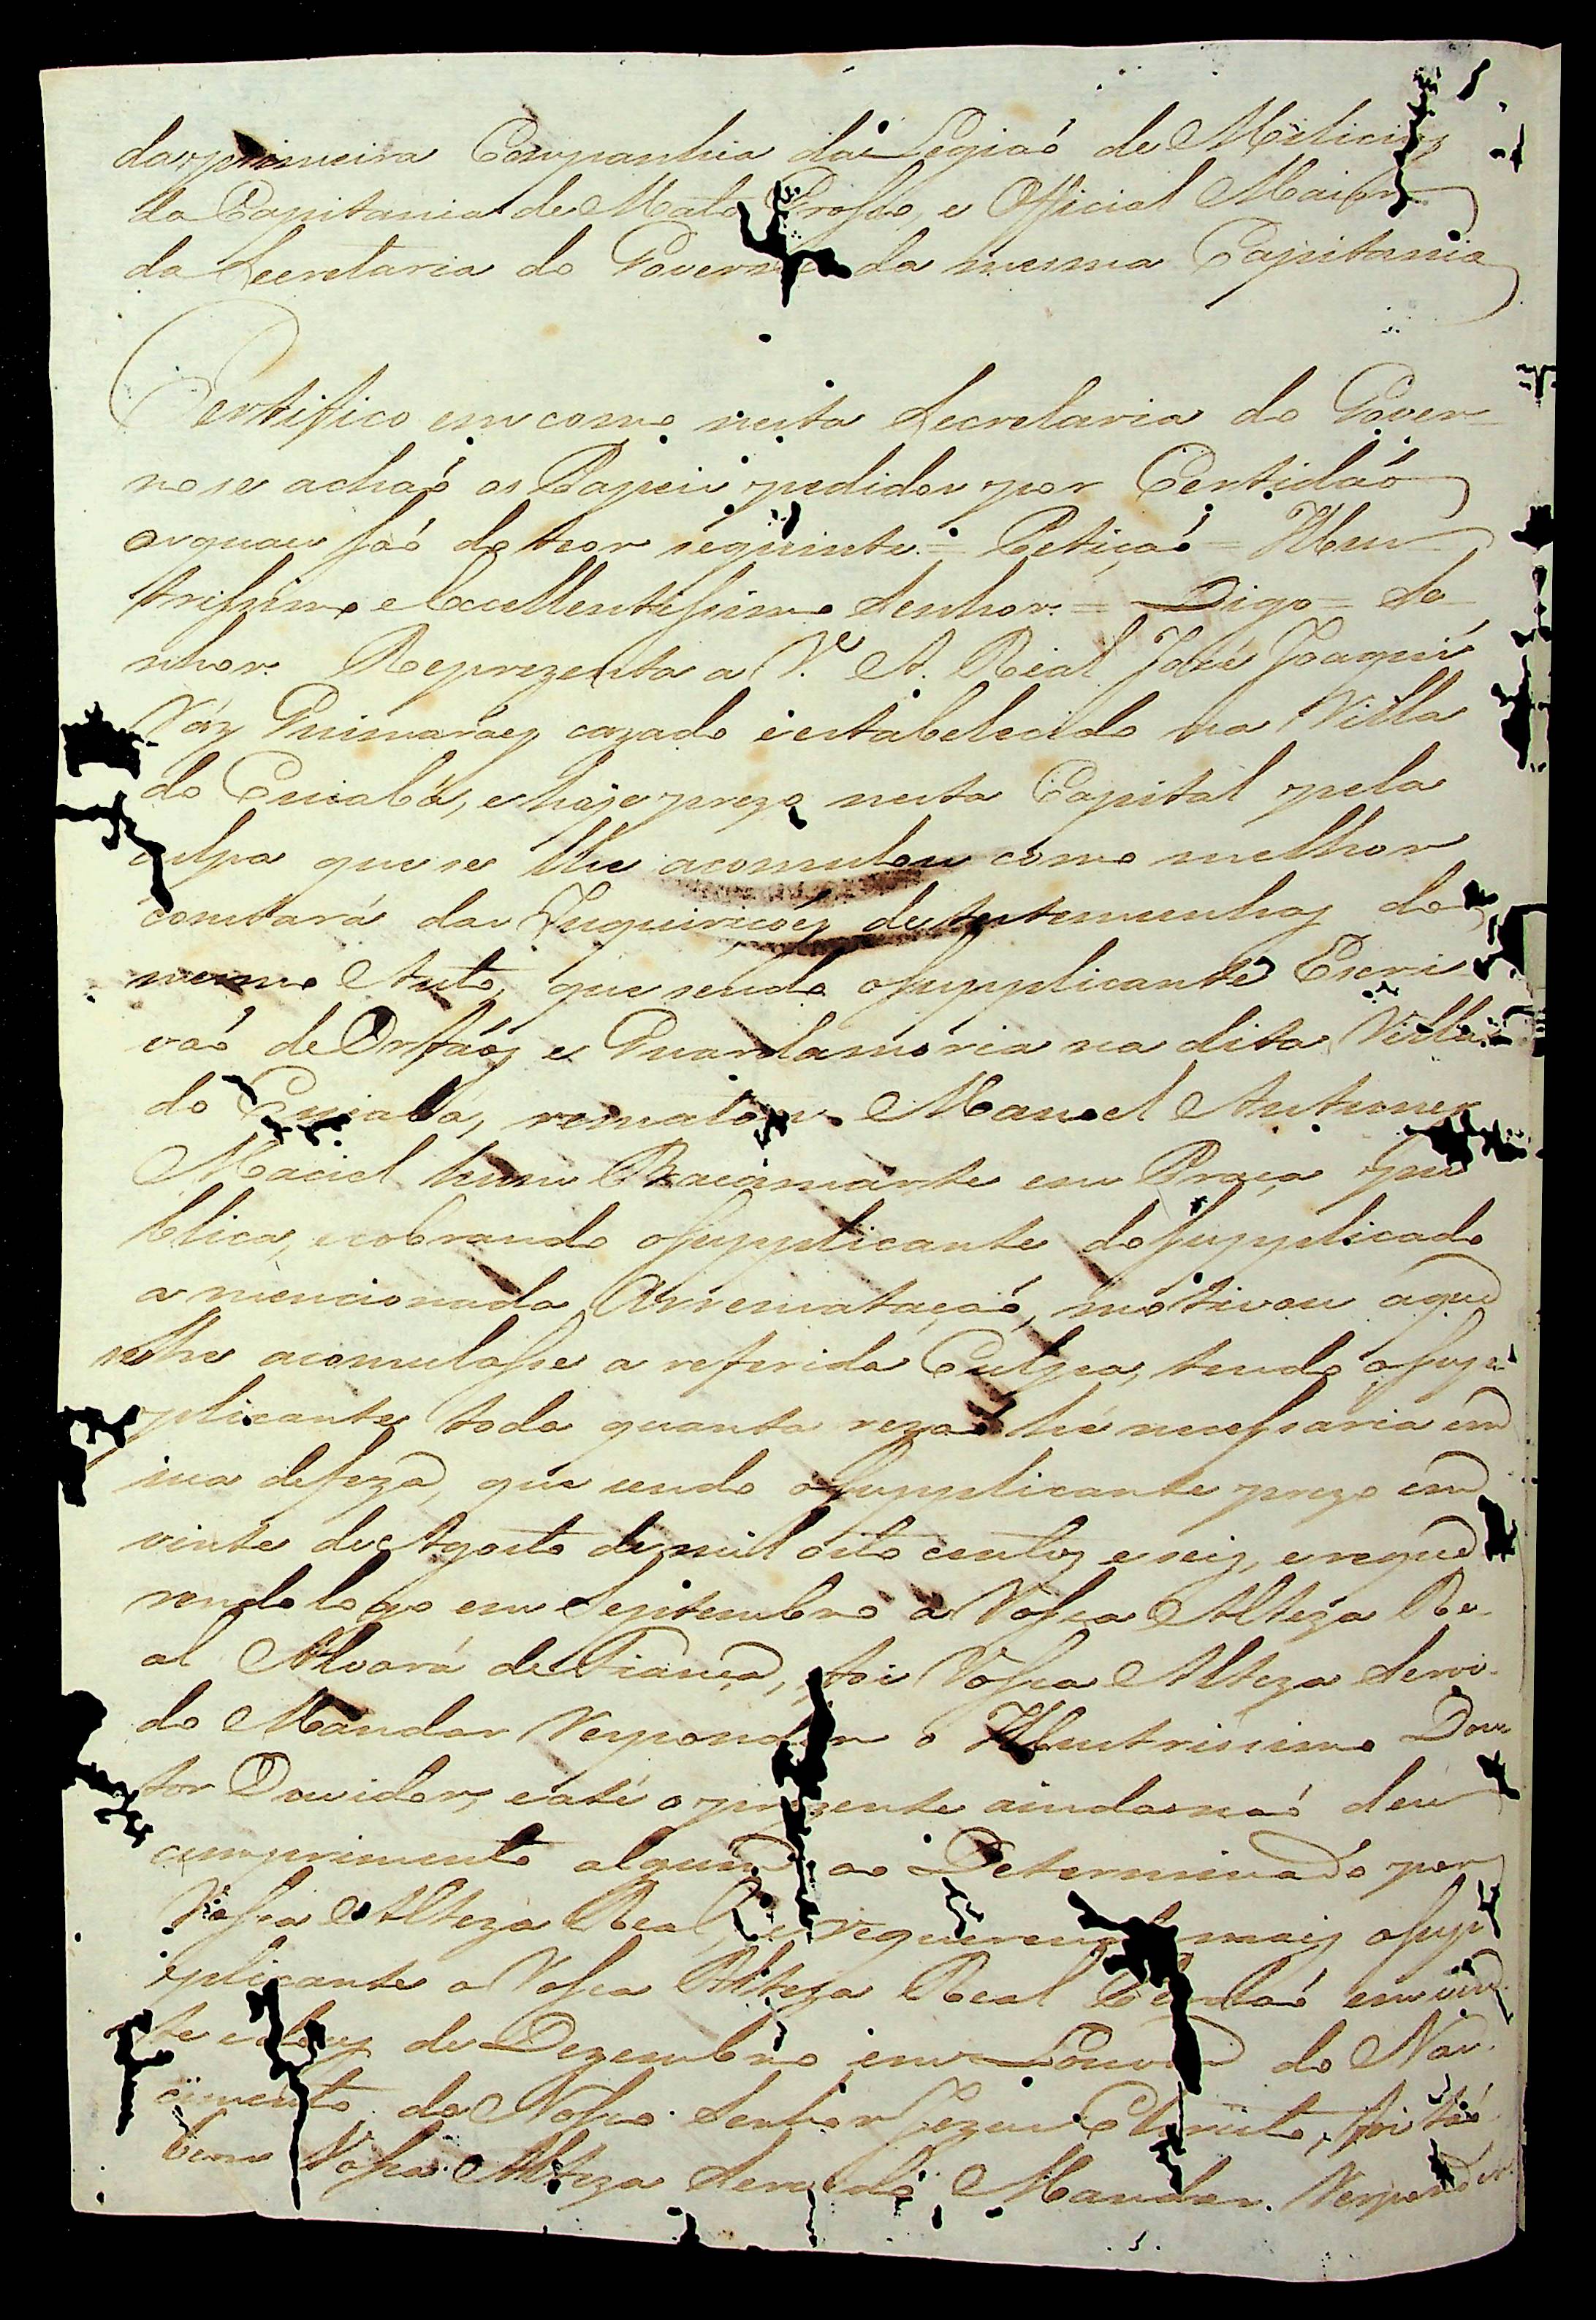 da primeira Companhia da Legiaõ de Milicias
da Capitania de Mato Grosso, e Official Maior
da Secretaria do Governo da mesma Capitania
Certifico em como nesta Secretaria do Gover-
no se achaõ os Papeis pedidos por Certidaõ
os quaes saõ do theor seguinte = Petiçaõ = Illus-
trissimo e Excellentissimo Senhor = Digo = Se-
nhor. Reprezenta a V.ª A. Real José Joaquim
Váz Guimaraẽs cazado e estabelecido na Villa
do Cuiabá, e hoje prezo nesta Capital pela
culpa que se lhe acomulou como melhor
constará das Inquiriçoẽs de testemunhas do
mesmo Auto, que sendo o supplicante Escri-
vaõ de Orfaõs e Guardamoria na dita Villa
do Cuiabá, rematou Manoel Antunes
Maciel hum Bracamarte em Praça pu-
blica, e cobrando o supplicante do supplicado
a mencionada Arremataçaõ, motivou a que
se lhe acomulasse a referida Culpa, tendo o sup-
plicante toda quanta rezaõ hé necessaria em
sua defeza, que sendo o supplicante prezo em
vinte de Agosto de mil oito centos e seis, e reque-
rendo logo em Septembro a Vossa Alteza Re-
al Alvará de Fiança, foi Vossa Alteza Servi-
do Mandar Responder o Illustrissimo Dou-
tor Ouvidor, e até o prezente ainda naõ deu
cumprimento algum ao Determinado por
Vossa Alteza Real, e requerendo mais o sup-
plicante a Vossa Alteza Real em vin-
te e dous de Dezembro em Louvor do Nas-
cimento de Nosso Senhor Jezus Christo, foi tam-
bem Vossa Alteza Servido Mandar Responder